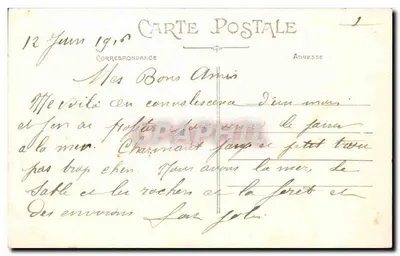 CARTE POSTALE
1
12 Juin 19
CORRESPONDANCE
ADRESSE
Mes Bons Amis
Me voilà en convalescence d'un mois
et j'en ai profité pour
a la mer. Charmant pays et petit trou
pas trop cher. Nous avons la mer, le
sable et les rochers et la forêt et
des environs fort jolis